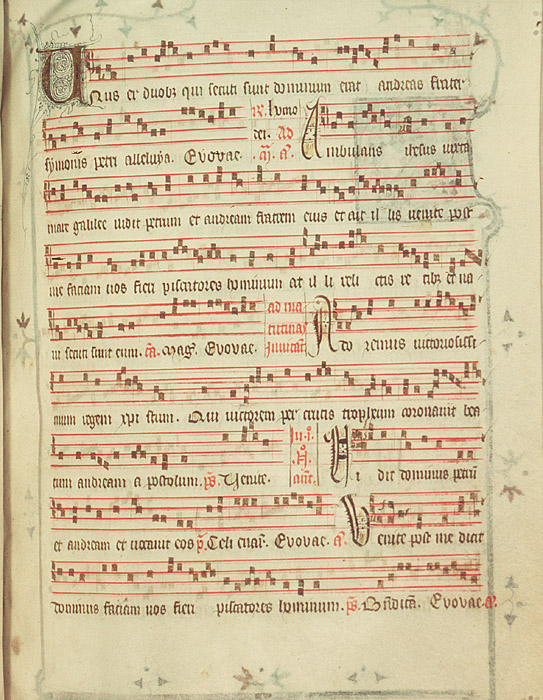 Unus ex duobz qui secuti sunt dominum erat andreas frater
symonis petri alleluya. Evovae. Ad Ambulans ihesus iuxta
mare galilee vidit petrum et andream fratrem eius et ait il lis venite post
me faciam vos fieri piscatores hominum at il li reli ctis re tibz et na
vi secuti sunt eum. mag. Evovae. ad ma tutinas Invitat. Ado remus victoriosissi
mum regem xpi stum. Qui victorem per crucis tropheum coronavit bea
tum andream a postolum. ps. Venite. Vi dit dominus petrum
et andream et vocavit eos ps. Celi enar. Evovae. a. Venite post me dicit
dominus faciam vos fieri piscatores hominum. ps. Bndica. Evovae. a.